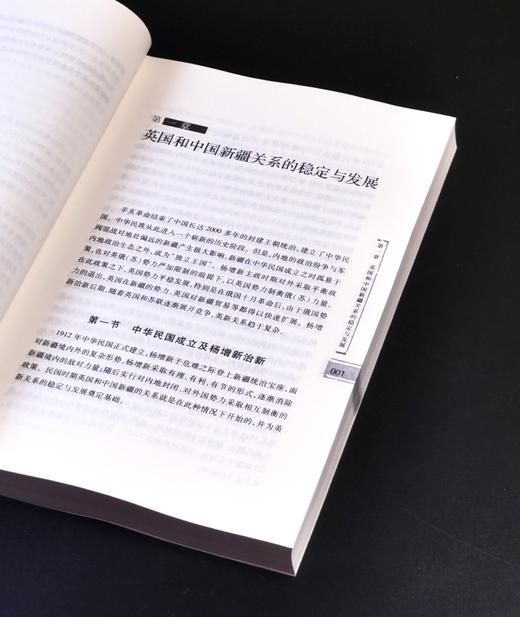 第一章
英国和中国新疆关系的稳定与发展
辛亥革命结束了中国长达 2000 多年的封建王朝统治，建立了中华民
国。中华民族从此进入一个崭新的历史阶段。但是，内地的政治纷争与军
阀混战对地处偏远的新疆产生极大影响，新疆在中华民国成立之时孤悬于
内地政治生态之外，成为“独立王国”。杨增新主政时期对外采取平衡政
策，在对英俄（苏）势力严加限制的前提下，以英国势力制衡俄（苏）力量。
在此政策之下，英国势力平稳发展，特别是在俄国十月革命后，由于俄国势
力的退出，英国在新疆的势力、英国对新疆贸易等都得以快速扩展。杨增
新治新后期，随着英国和苏联逐渐展开竞争，英新关系趋于复杂。
第一节 中华民国成立及杨增新治新
1912 年中华民国正式建立，杨增新于危难之际登上新疆统治宝座，面
对新疆境内外的复杂形势，杨增新采取有理、有利、有节的形式，逐渐消除
新疆境内的敌对力量；随后实行对内地封闭、对外国势力采取相互制衡的
政策。民国时期英国和中国新疆的关系就是在此种情况下开始的，并为英
新关系的稳定与发展奠定基础。
第一章 英国和中国新疆关系的稳定与发展
001